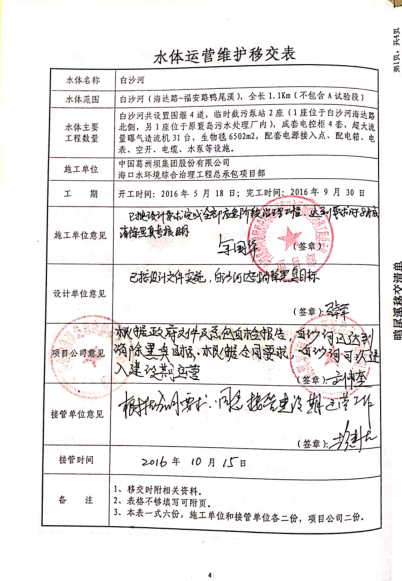 第1页，共4页
水体运营维护移交表
水体名称 白沙河
水体范围 白沙河（海达路-福安路鸭尾溪），全长 1.1Km（不包含 A 试验段）
水体主要工程数量 白沙河共设置围堰 4 道，临时截污泵站 2 座（1 座位于白沙河海达路
北侧，另 1 座位于原寰岛污水处理厂内），成套电控柜 4 套，超大流
量曝气造流机 31 台，生物毯 6502m2，配套电源接入点、配电箱、电
表、空开、电缆、水泵等设施。
施工单位 中国葛洲坝集团股份有限公司
海口水环境综合治理工程总承包项目部
工 期 开工时间：2016 年 5 月 18 日；完工时间：2016 年 9 月 30 日
施工单位意见
消除黑臭考核
（签章）
项目部
设计单位意见 已按设计文件实施，白沙河达到消除黑臭目标
（签章）
项目公司意见 根据政府文件及总包自检报告，白沙河已达到
消除黑臭目标，根据合同要求，白沙河可以进
入建设期运营
（签章）
接管单位意见 根据合同要求，同意接管建设期运营工作
（签章）
接管时间 2016 年 10 月 15 日
备 注 1、移交时附相关资料。
2、表格不够填写可附页。
3、本表一式六份，施工单位和接管单位各二份，项目公司二份。
鸭尾溪移交清单
4